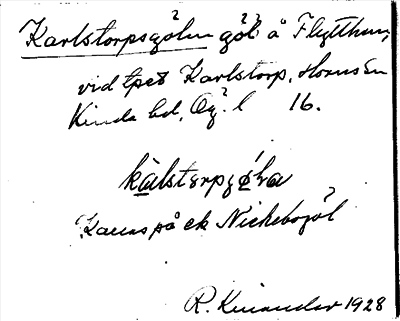 Karlstorpsgölen göl å Flytthem,
vid tpet Karlstorp, Horns sn
Kinda hd, Ög. l 16.
kàlstərpgǿla
Kallas på ek Nickebogöl
R. Kinander 1928